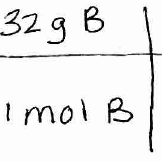 32 g B
1 mol B